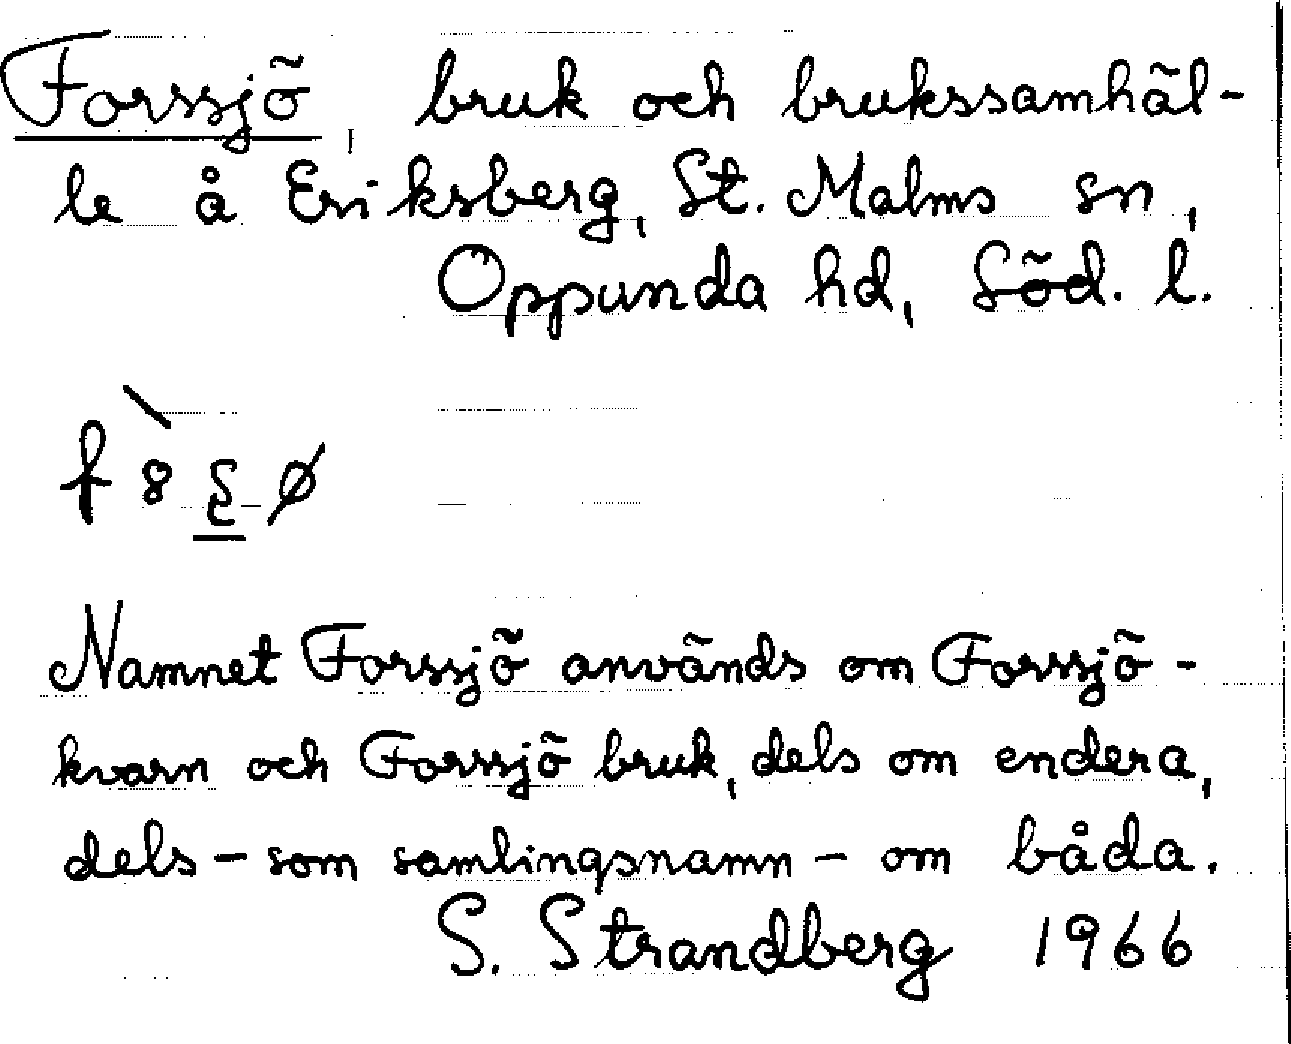 Forssjö, bruk och brukssamhäl-
le å Eriksberg, St. Malms sn,
Oppunda hd, Söd. l.
Namnet Forssjö används om Forssjö-
kvarn och Forssjö bruk, dels om endera,
dels – som samlingsnamn – om båda.
S. Strandberg 1966